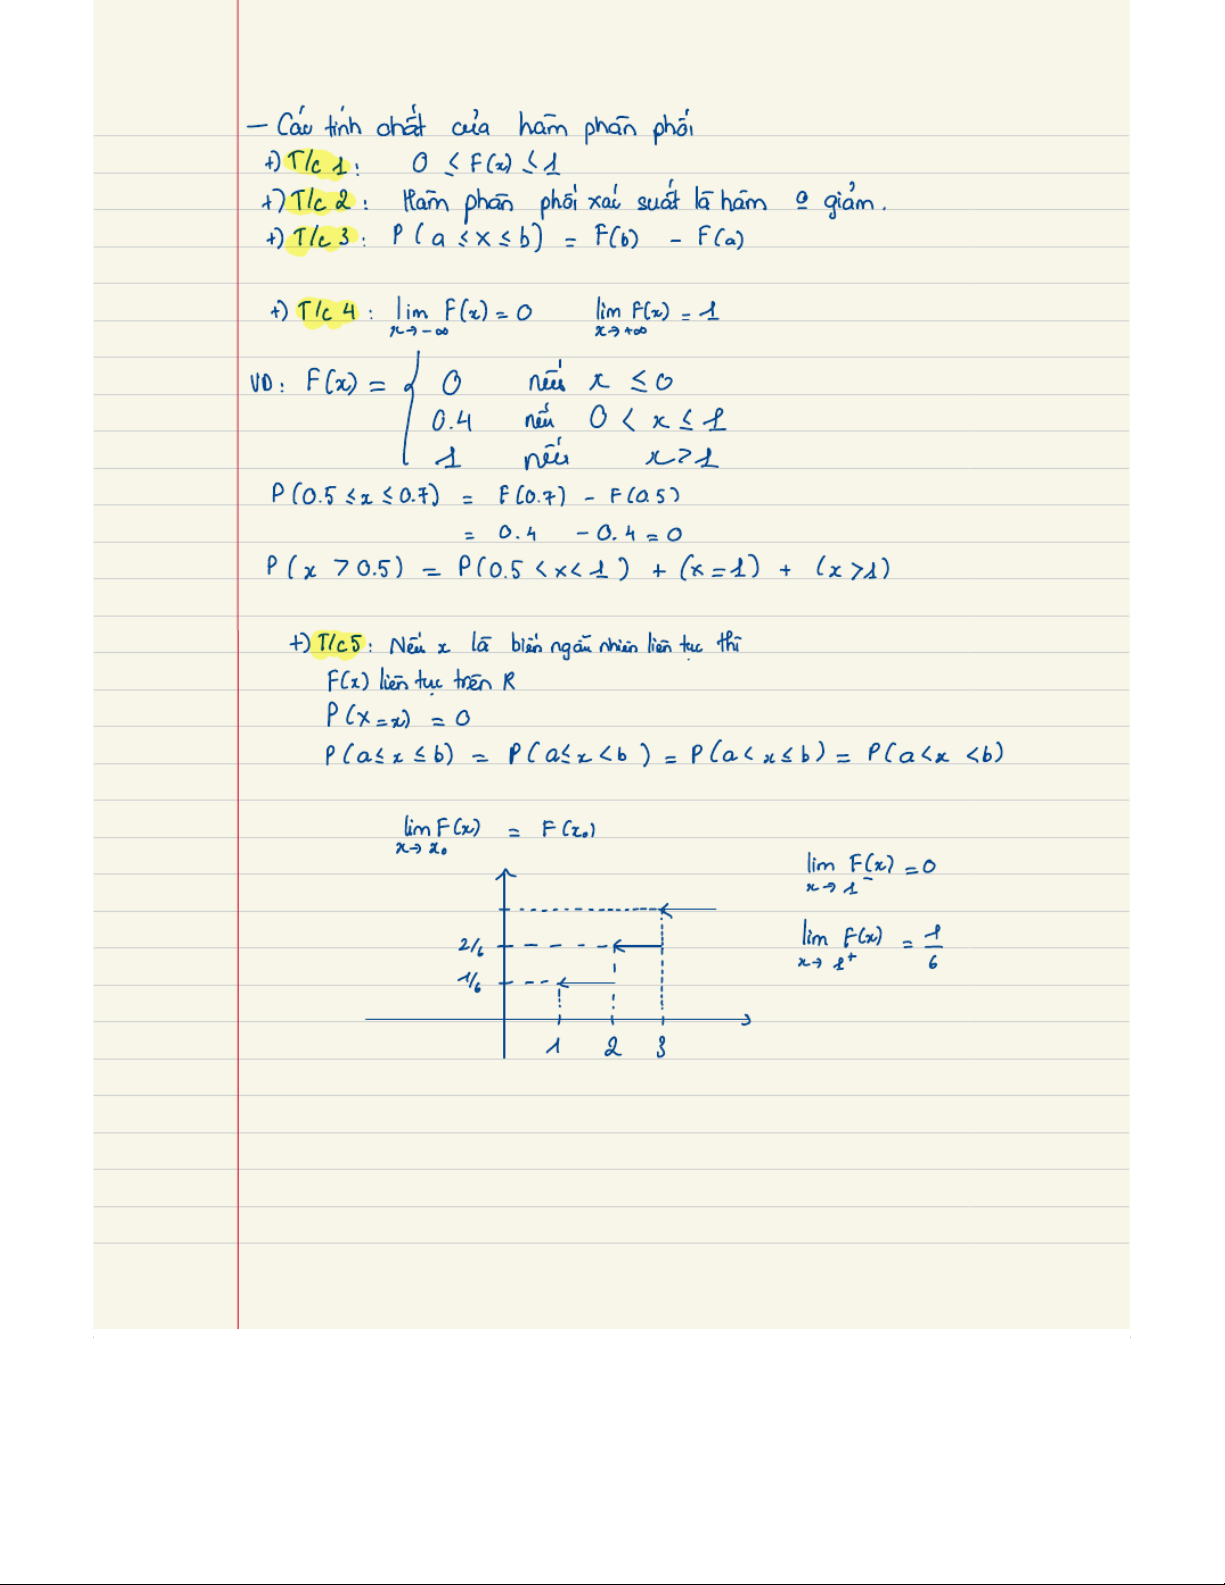 - Các tính chất của hàm phân phối
+) T/c 1: 0 ≤ F(x) ≤ 1
+) T/c 2: Hàm phân phối xác suất là hàm o giảm.
+) T/c 3: P(a ≤ X ≤ b) = F(b) - F(a)
+) T/c 4: lim F(x) = 0 lim F(x) = 1
x→-∞ x→+∞
VD: F(x) = { 0 nếu x ≤ 0
0.4 nếu 0 < x ≤ 1
1 nếu x > 1
P(0.5 ≤ x ≤ 0.7) = F(0.7) - F(0.5)
= 0.4 - 0.4 = 0
P(x > 0.5) = P(0.5 < x < 1) + (x = 1) + (x > 1)
+) T/c 5: Nếu x là biến ngẫu nhiên liên tục thì
F(x) liên tục trên R
P(X = x) = 0
P(a ≤ x ≤ b) = P(a ≤ x < b) = P(a < x ≤ b) = P(a < x < b)
lim F(x) = F(x₀)
x→x₀
lim F(x) = 0
x→1⁻
2/6
lim F(x) = 1/6
x→1⁺
1/6
1 2 3